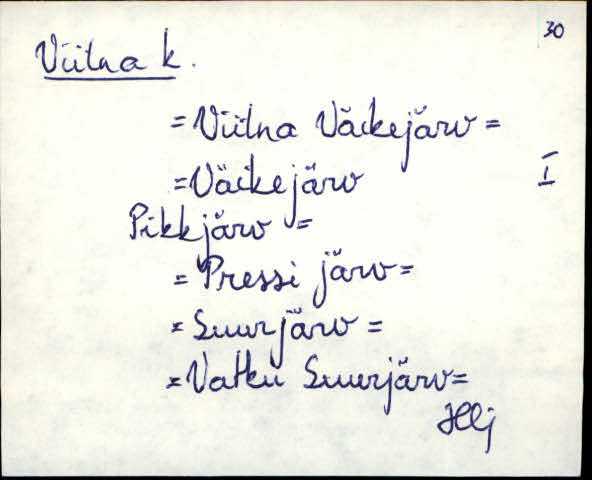 30
Viitna k.
= Viitna Väikejärv =
= Väikejärv
I
Pikkjärv =
= Pressi järv =
= Suurjärv =
= Vatku Suurjärv =
Hlj